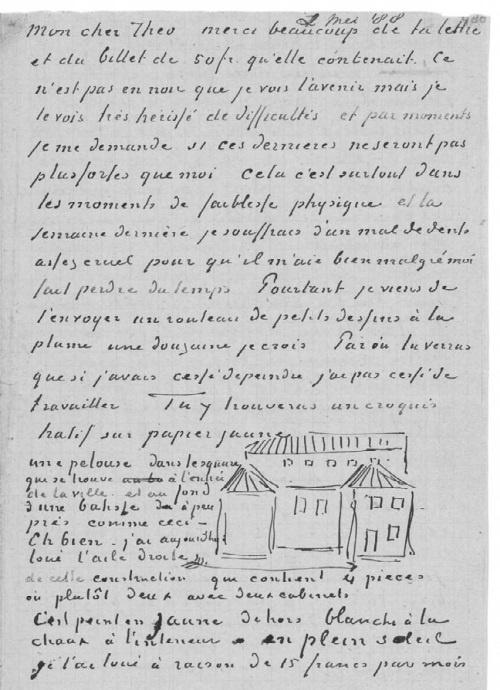 2 Mei '88
Mon cher Theo merci beaucoup de ta lettre
et du billet de 50 fr. qu'elle contenait. Ce
n'est pas en noir que je vois l'avenir mais je
le vois très hérissé de difficultés et par moments
je me demande si ces dernières ne seront pas
plus fortes que moi Cela c'est surtout dans
les moments de faiblesse physique et la
semaine dernière je souffrais d'un mal de dents
assez cruel pour qu'il m'aie bien malgré moi
fait perdre du temps Pourtant je viens de
t'envoyer un rouleau de petits dessins à la
plume une douzaine je crois Par où tu verras
que si j'avais cessé de peindre j'ai pas cessé de
travailler Tu y trouveras un croquis
hatif sur papier jaune
une pelouse dans le square
qui se trouve à l'entrée
de la ville. et au fond
d'une batisse à peu
près comme ceci –
Eh bien – j'ai aujourd'hui
loué l'aile droite
de cette construction qui contient 4 pièces
ou plutôt deux avec deux cabinets
C'est peint en jaune dehors blanchi à la
chaux à l'interieur en plein soleil
je l'ai loué à raison de 15 francs par mois